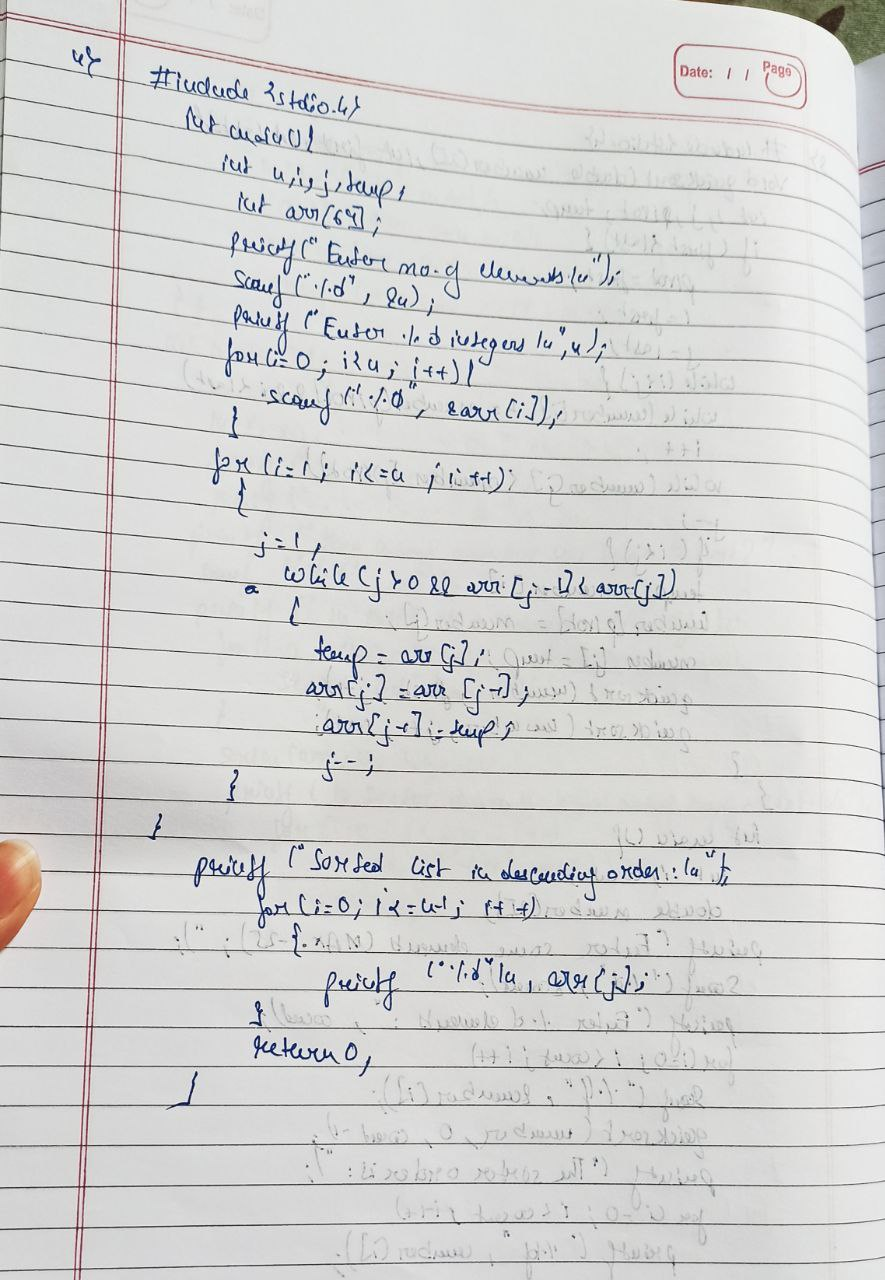 Date: / / Page
4}
#include {stdio.h}
int main(){
int n,i,j,temp,
int arr[64];
printf(" Enter no. of elements \n");
scanf ("%d", &n);
printf ("Enter %d integers \n", n);
for(i=0; i<n; i++){
scanf ("%d", &arr[i]);
}
for (i=1; i<=n ; i++);
{
j=1,
while (j>0 && arr[j-1]< arr[j])
{
temp = arr[j];
arr[j] = arr [j-1];
arr[j-1] = temp;
j--;
}
}
printf ("Sorted list in descending order: \n");
for (i=0; i<=n-1; i++)
{
printf ("%d"\n, arr[j];
}
return 0,
}